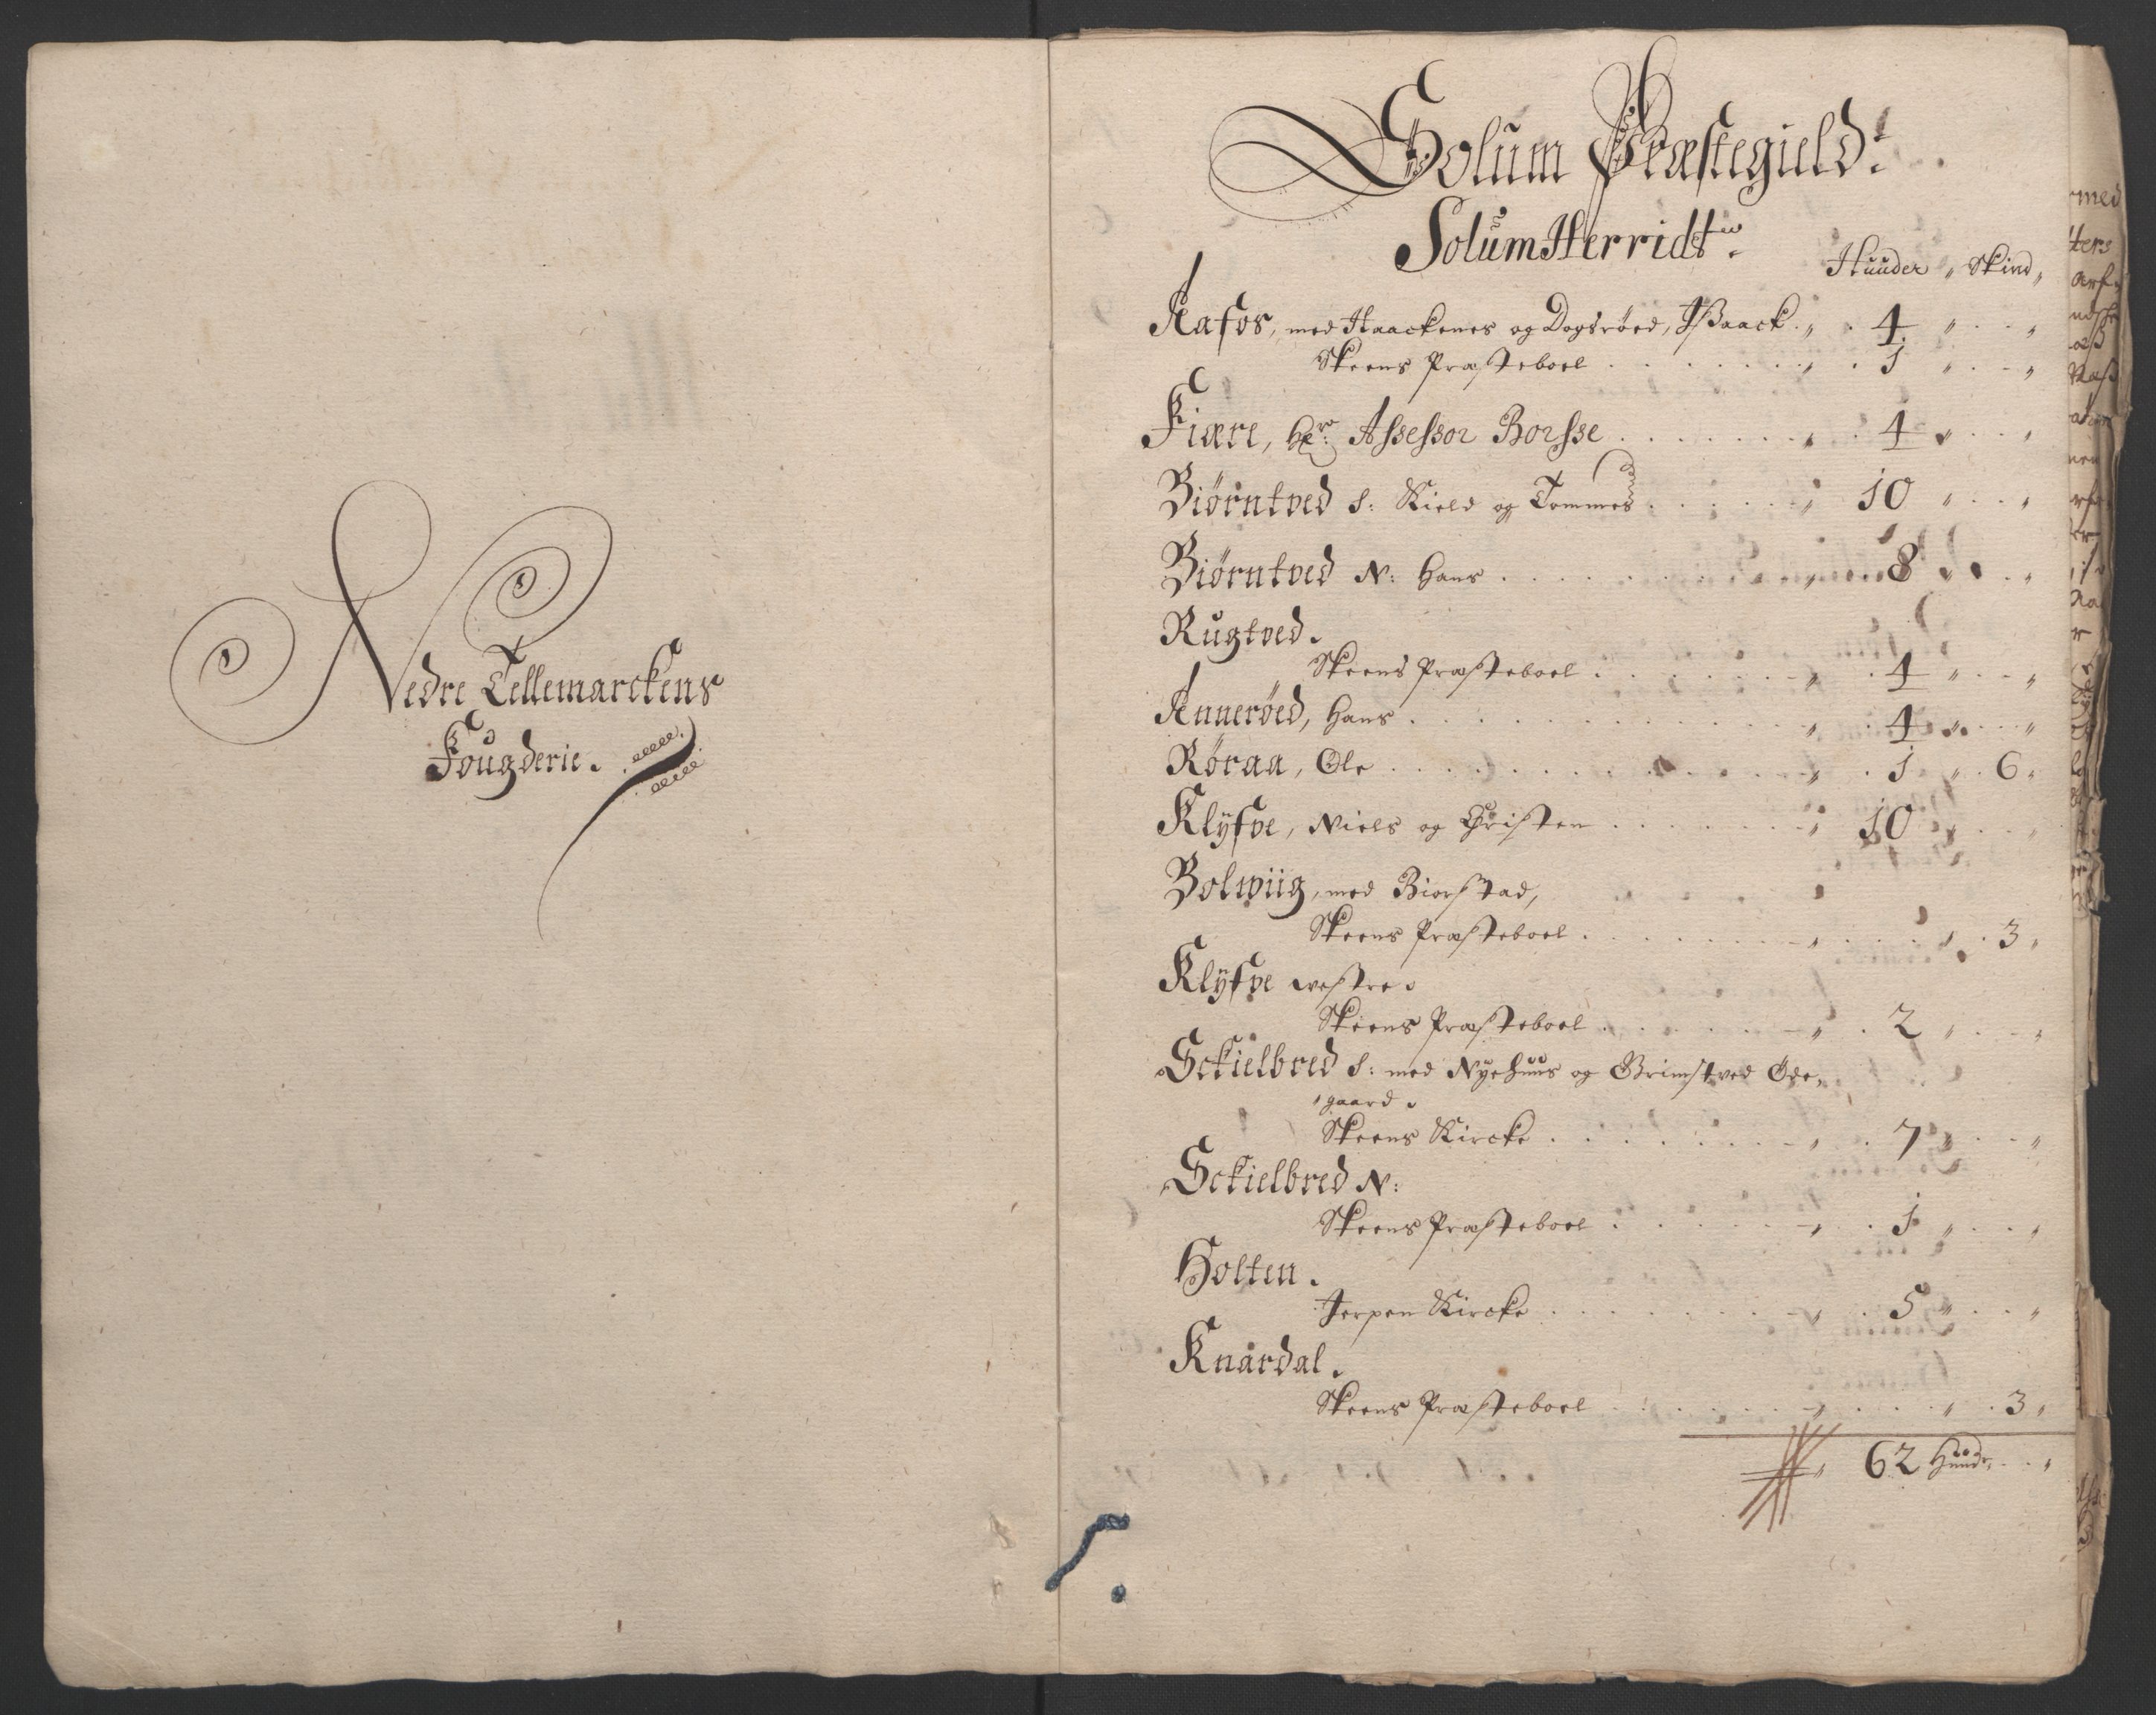 Nedre Tellemarckens
Fougderie.
Solum Præstegield:
Solum Herridt
Huuder „ Skind „
Aafos, med Haackenes og Dogsrøed, Ißaack „ 4 „ „
Skeens Præsteboel „ 1 „ „
Fiære, Hr: Assessor Borsse „ 4 „ „
Biørntved S: Kield og Tommes „ 10 „ „
Biørntved N: Hans „ 8 „ „
Rugtved.
Skeens Præsteboel „ 4 „ „
Annerøed, Hans „ 4 „ „
Røraa, Ole „ 1 „ 6 „
Klÿfve, Niels og Christen „ 10 „ „
Bolwiig, med Biorstad,
Skeens Præsteboel „ „ 3 „
Klÿfve westre.
Skeens Præsteboel „ 2 „ „
Sckielbred S: med Nÿehuus og Grimstved Øde„
„gaard.
Skeens Kircke „ 7 „ „
Sckielbred N:
Skeens Præsteboel „ 1 „ „
Holten.
Jerpen Kircke „ 5 „ „
Knardal.
Skeens Præsteboel „ „ 3 „
„ 62 Huudr „ „